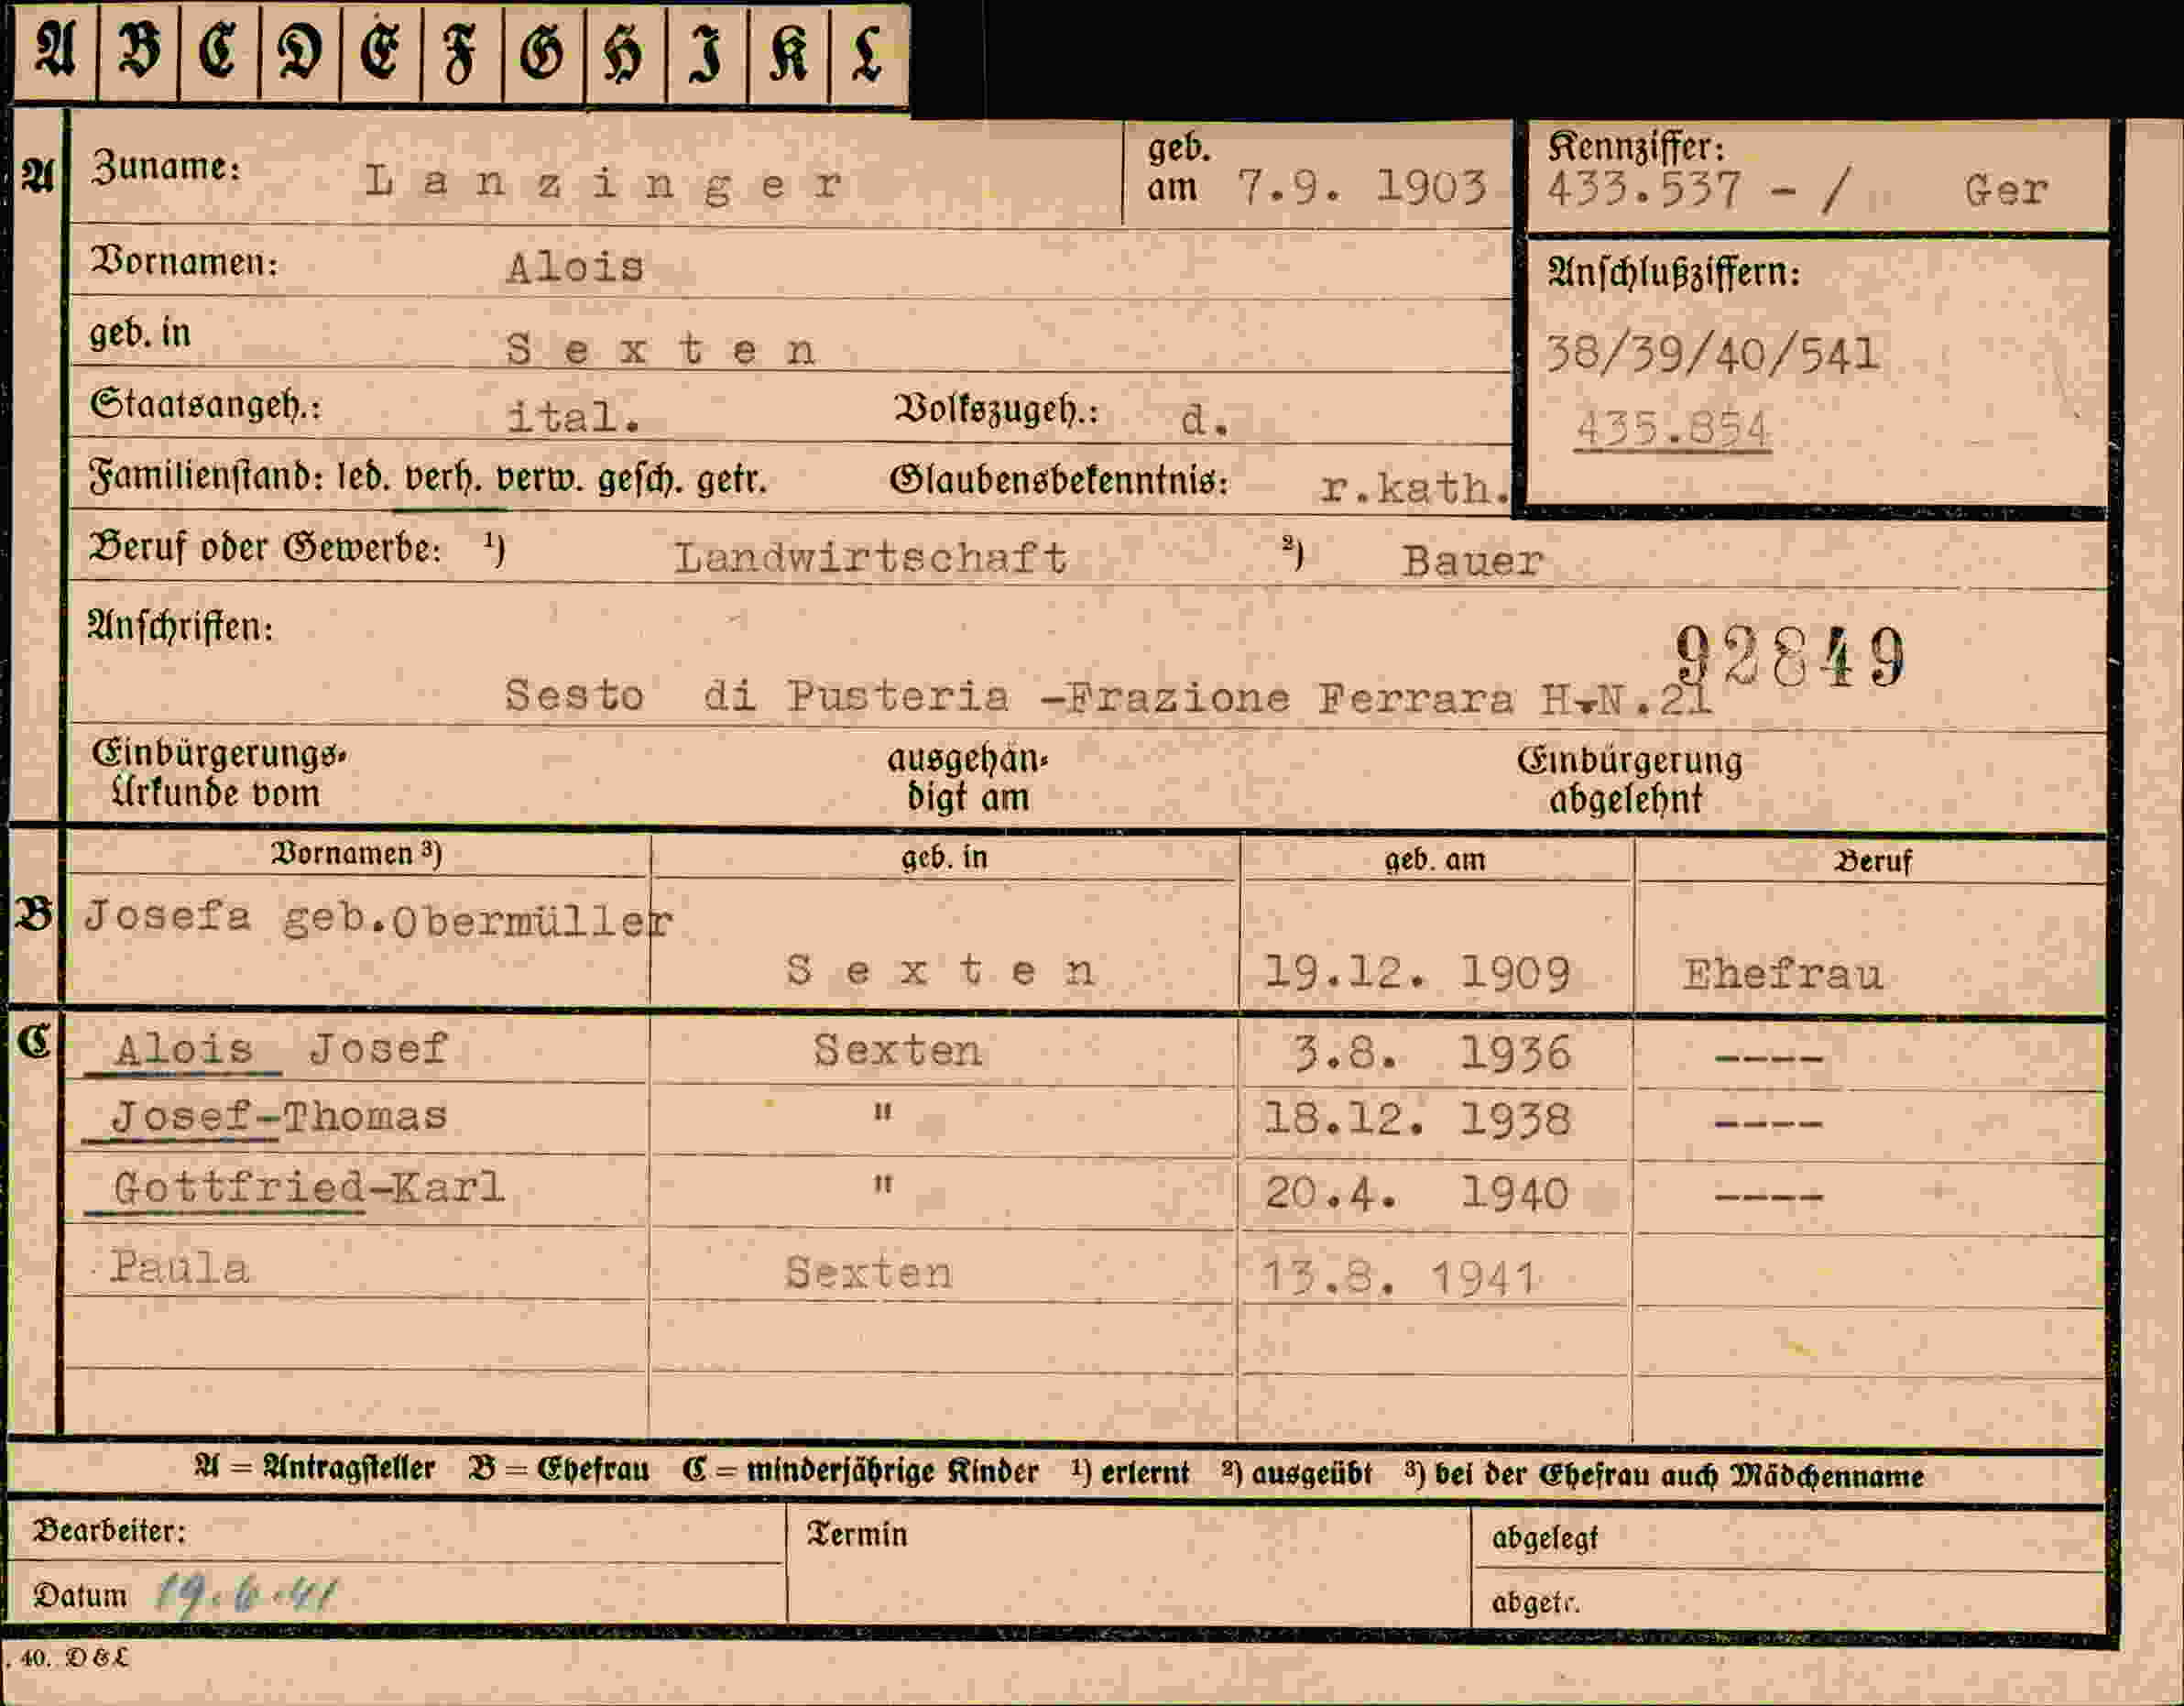 A B C D E F G H I K L
A Zuname: Lanzinger geb. am 7.9. 1903 Kennziffer: 433.537 - / Ger
Vornamen: Alois Anschlußziffern:
geb. in Sexten 38/39/40/541
Staatsangeh.: ital. Volkszugeh.: d. 435.854
Familienstand: led. verh. verw. gesch. getr. Glaubensbekenntnis: r.kath.
Beruf oder Gewerbe: ¹) Landwirtschaft ²) Bauer
Anschriften: 92849
Sesto di Pusteria -Frazione Ferrara H.N.21
Einbürgerungs- ausgehän- Einbürgerung
Urkunde vom digt am abgelehnt
Vornamen ³) geb. in geb. am Beruf
B Josefa geb.Obermüller
Sexten 19.12. 1909 Ehefrau
C Alois Josef Sexten 3.8. 1936 ----
Josef-Thomas " 18.12. 1938 ----
Gottfried-Karl " 20.4. 1940 ----
Paula Sexten 13.8. 1941
A = Antragsteller B = Ehefrau C = minderjährige Kinder ¹) erlernt ²) ausgeübt ³) bei der Ehefrau auch Mädchenname
Bearbeiter: Termin abgelegt
Datum 19.6.41 abgetr.
. 40. D & L